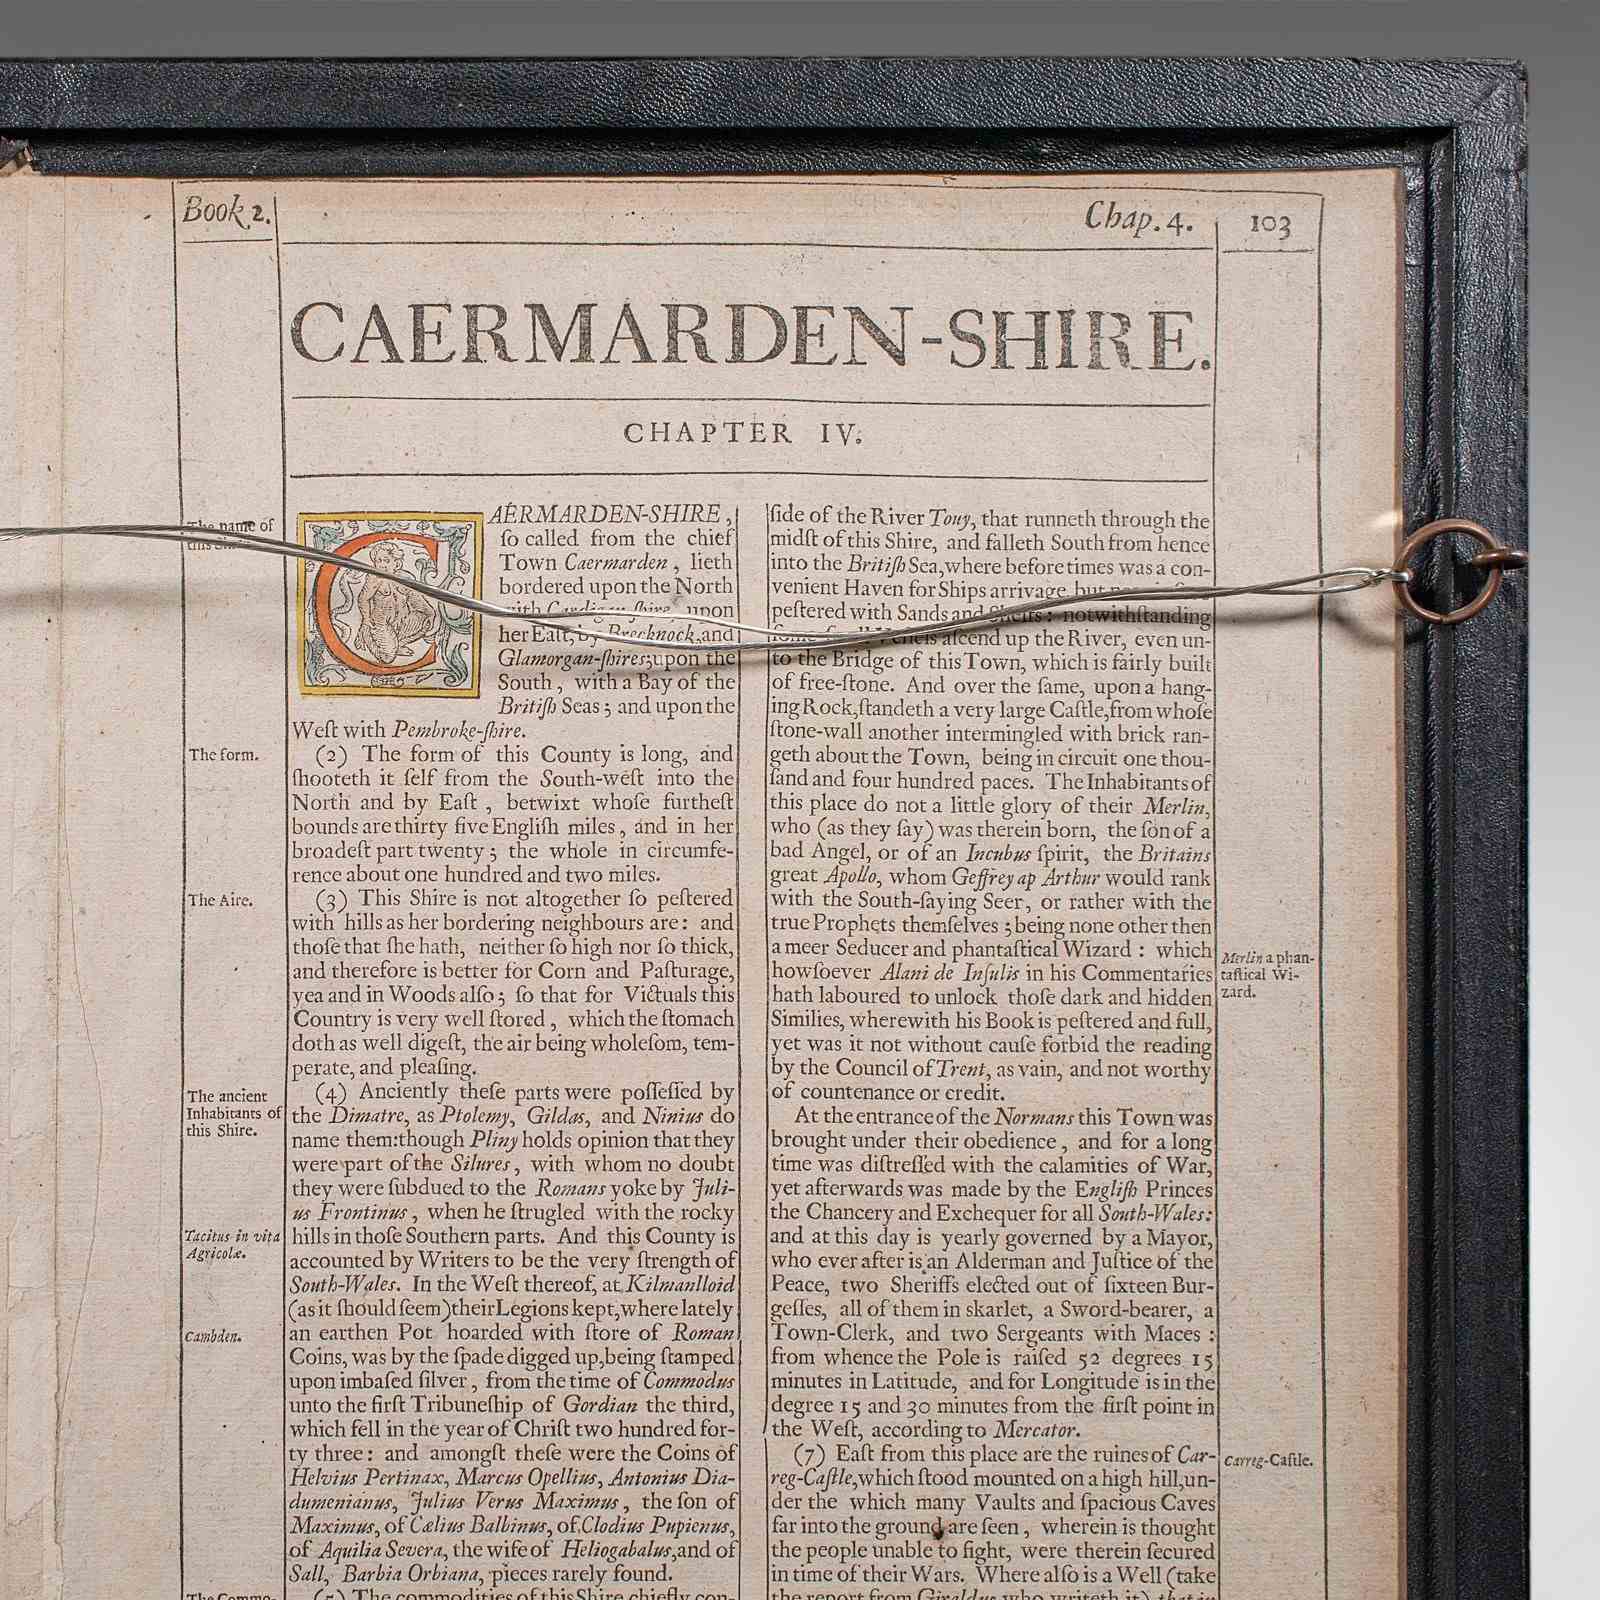 Book 2.
Chap. 4.
103
CAERMARDEN-SHIRE.
CHAPTER IV.
The name of
this
CAERMARDEN-SHIRE,
ſo called from the chief
Town Caermarden, lieth
bordered upon the North
with Cardigan-ſhire, upon
her Eaſt, by Brecknock, and
Glamorgan-ſhires; upon the
South, with a Bay of the
Britiſh Seas; and upon the
Weſt with Pembroke-ſhire.
The form.
(2) The form of this County is long, and
ſhooteth it ſelf from the South-weſt into the
North and by Eaſt, betwixt whoſe furtheſt
bounds are thirty five Engliſh miles, and in her
broadeſt part twenty; the whole in circumfe-
rence about one hundred and two miles.
The Aire.
(3) This Shire is not altogether ſo peſtered
with hills as her bordering neighbours are: and
thoſe that ſhe hath, neither ſo high nor ſo thick,
and therefore is better for Corn and Paſturage,
yea and in Woods alſo; ſo that for Victuals this
Country is very well ſtored, which the ſtomach
doth as well digeſt, the air being wholeſom, tem-
perate, and pleaſing.
The ancient
Inhabitants of
this Shire.
(4) Anciently theſe parts were poſſeſſed by
the Dimatre, as Ptolemy, Gildas, and Ninius do
name them: though Pliny holds opinion that they
were part of the Silures, with whom no doubt
they were ſubdued to the Romans yoke by Juli-
us Frontinus, when he ſtrugled with the rocky
Tacitus in vita
Agricolæ.
hills in thoſe Southern parts. And this County is
accounted by Writers to be the very ſtrength of
South-Wales. In the Weſt thereof, at Kilmanlloid
(as it ſhould ſeem) their Legions kept, where lately
Cambden.
an earthen Pot hoarded with ſtore of Roman
Coins, was by the ſpade digged up, being ſtamped
upon imbaſed ſilver, from the time of Commodus
unto the firſt Tribuneſhip of Gordian the third,
which fell in the year of Chriſt two hundred for-
ty three: and amongſt theſe were the Coins of
Helvius Pertinax, Marcus Opellius, Antonius Dia-
dumenianus, Julius Verus Maximus, the ſon of
Maximus, of Cælius Balbinus, of Clodius Pupienus,
of Aquilia Severa, the wife of Heliogabalus, and of
Sall, Barbia Orbiana, pieces rarely found.
The Commo-
(5) The commodities of this Shire chiefly con-
ſide of the River Touy, that runneth through the
midſt of this Shire, and falleth South from hence
into the Britiſh Sea, where before times was a con-
venient Haven for Ships arrivage, but
peſtered with Sands and Shelfs: notwithſtanding
ſome ſmall Veſſels aſcend up the River, even un-
to the Bridge of this Town, which is fairly built
of free-ſtone. And over the ſame, upon a hang-
ing Rock, ſtandeth a very large Caſtle, from whoſe
ſtone-wall another intermingled with brick ran-
geth about the Town, being in circuit one thou-
ſand and four hundred paces. The Inhabitants of
this place do not a little glory of their Merlin,
who (as they ſay) was therein born, the ſon of a
bad Angel, or of an Incubus ſpirit, the Britains
great Apollo, whom Geffrey ap Arthur would rank
with the South-ſaying Seer, or rather with the
true Prophets themſelves; being none other then
a meer Seducer and phantaſtical Wizard: which
Merlin a phan-
taſtical Wi-
zard.
howſoever Alani de Inſulis in his Commentaries
hath laboured to unlock thoſe dark and hidden
Similies, wherewith his Book is peſtered and full,
yet was it not without cauſe forbid the reading
by the Council of Trent, as vain, and not worthy
of countenance or credit.
At the entrance of the Normans this Town was
brought under their obedience, and for a long
time was diſtreſſed with the calamities of War,
yet afterwards was made by the Engliſh Princes
the Chancery and Exchequer for all South-Wales:
and at this day is yearly governed by a Mayor,
who ever after is an Alderman and Juſtice of the
Peace, two Sheriffs elected out of ſixteen Bur-
geſſes, all of them in skarlet, a Sword-bearer, a
Town-Clerk, and two Sergeants with Maces:
from whence the Pole is raiſed 52 degrees 15
minutes in Latitude, and for Longitude is in the
degree 15 and 30 minutes from the firſt point in
the Weſt, according to Mercator.
Carreg-Caſtle.
(7) Eaſt from this place are the ruines of Car-
reg-Caſtle, which ſtood mounted on a high hill, un-
der the which many Vaults and ſpacious Caves
far into the ground are ſeen, wherein is thought
the people unable to fight, were therein ſecured
in time of their Wars. Where alſo is a Well (take
the report from Giraldus who writeth it) that in